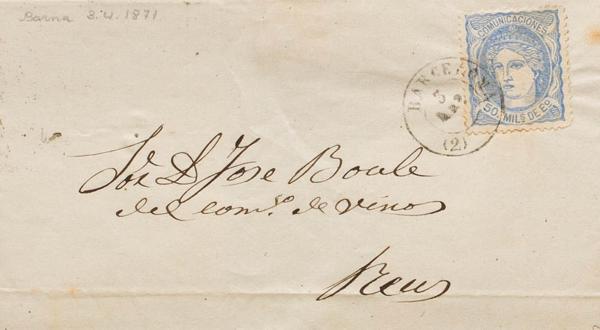 Barna 3.4.1871
COMUNICACIONES
50. MILS DE Eo.
BARCELONA
3
ABR
(2)
Sor. D. Jose Boule
del como. de vinos
Reus